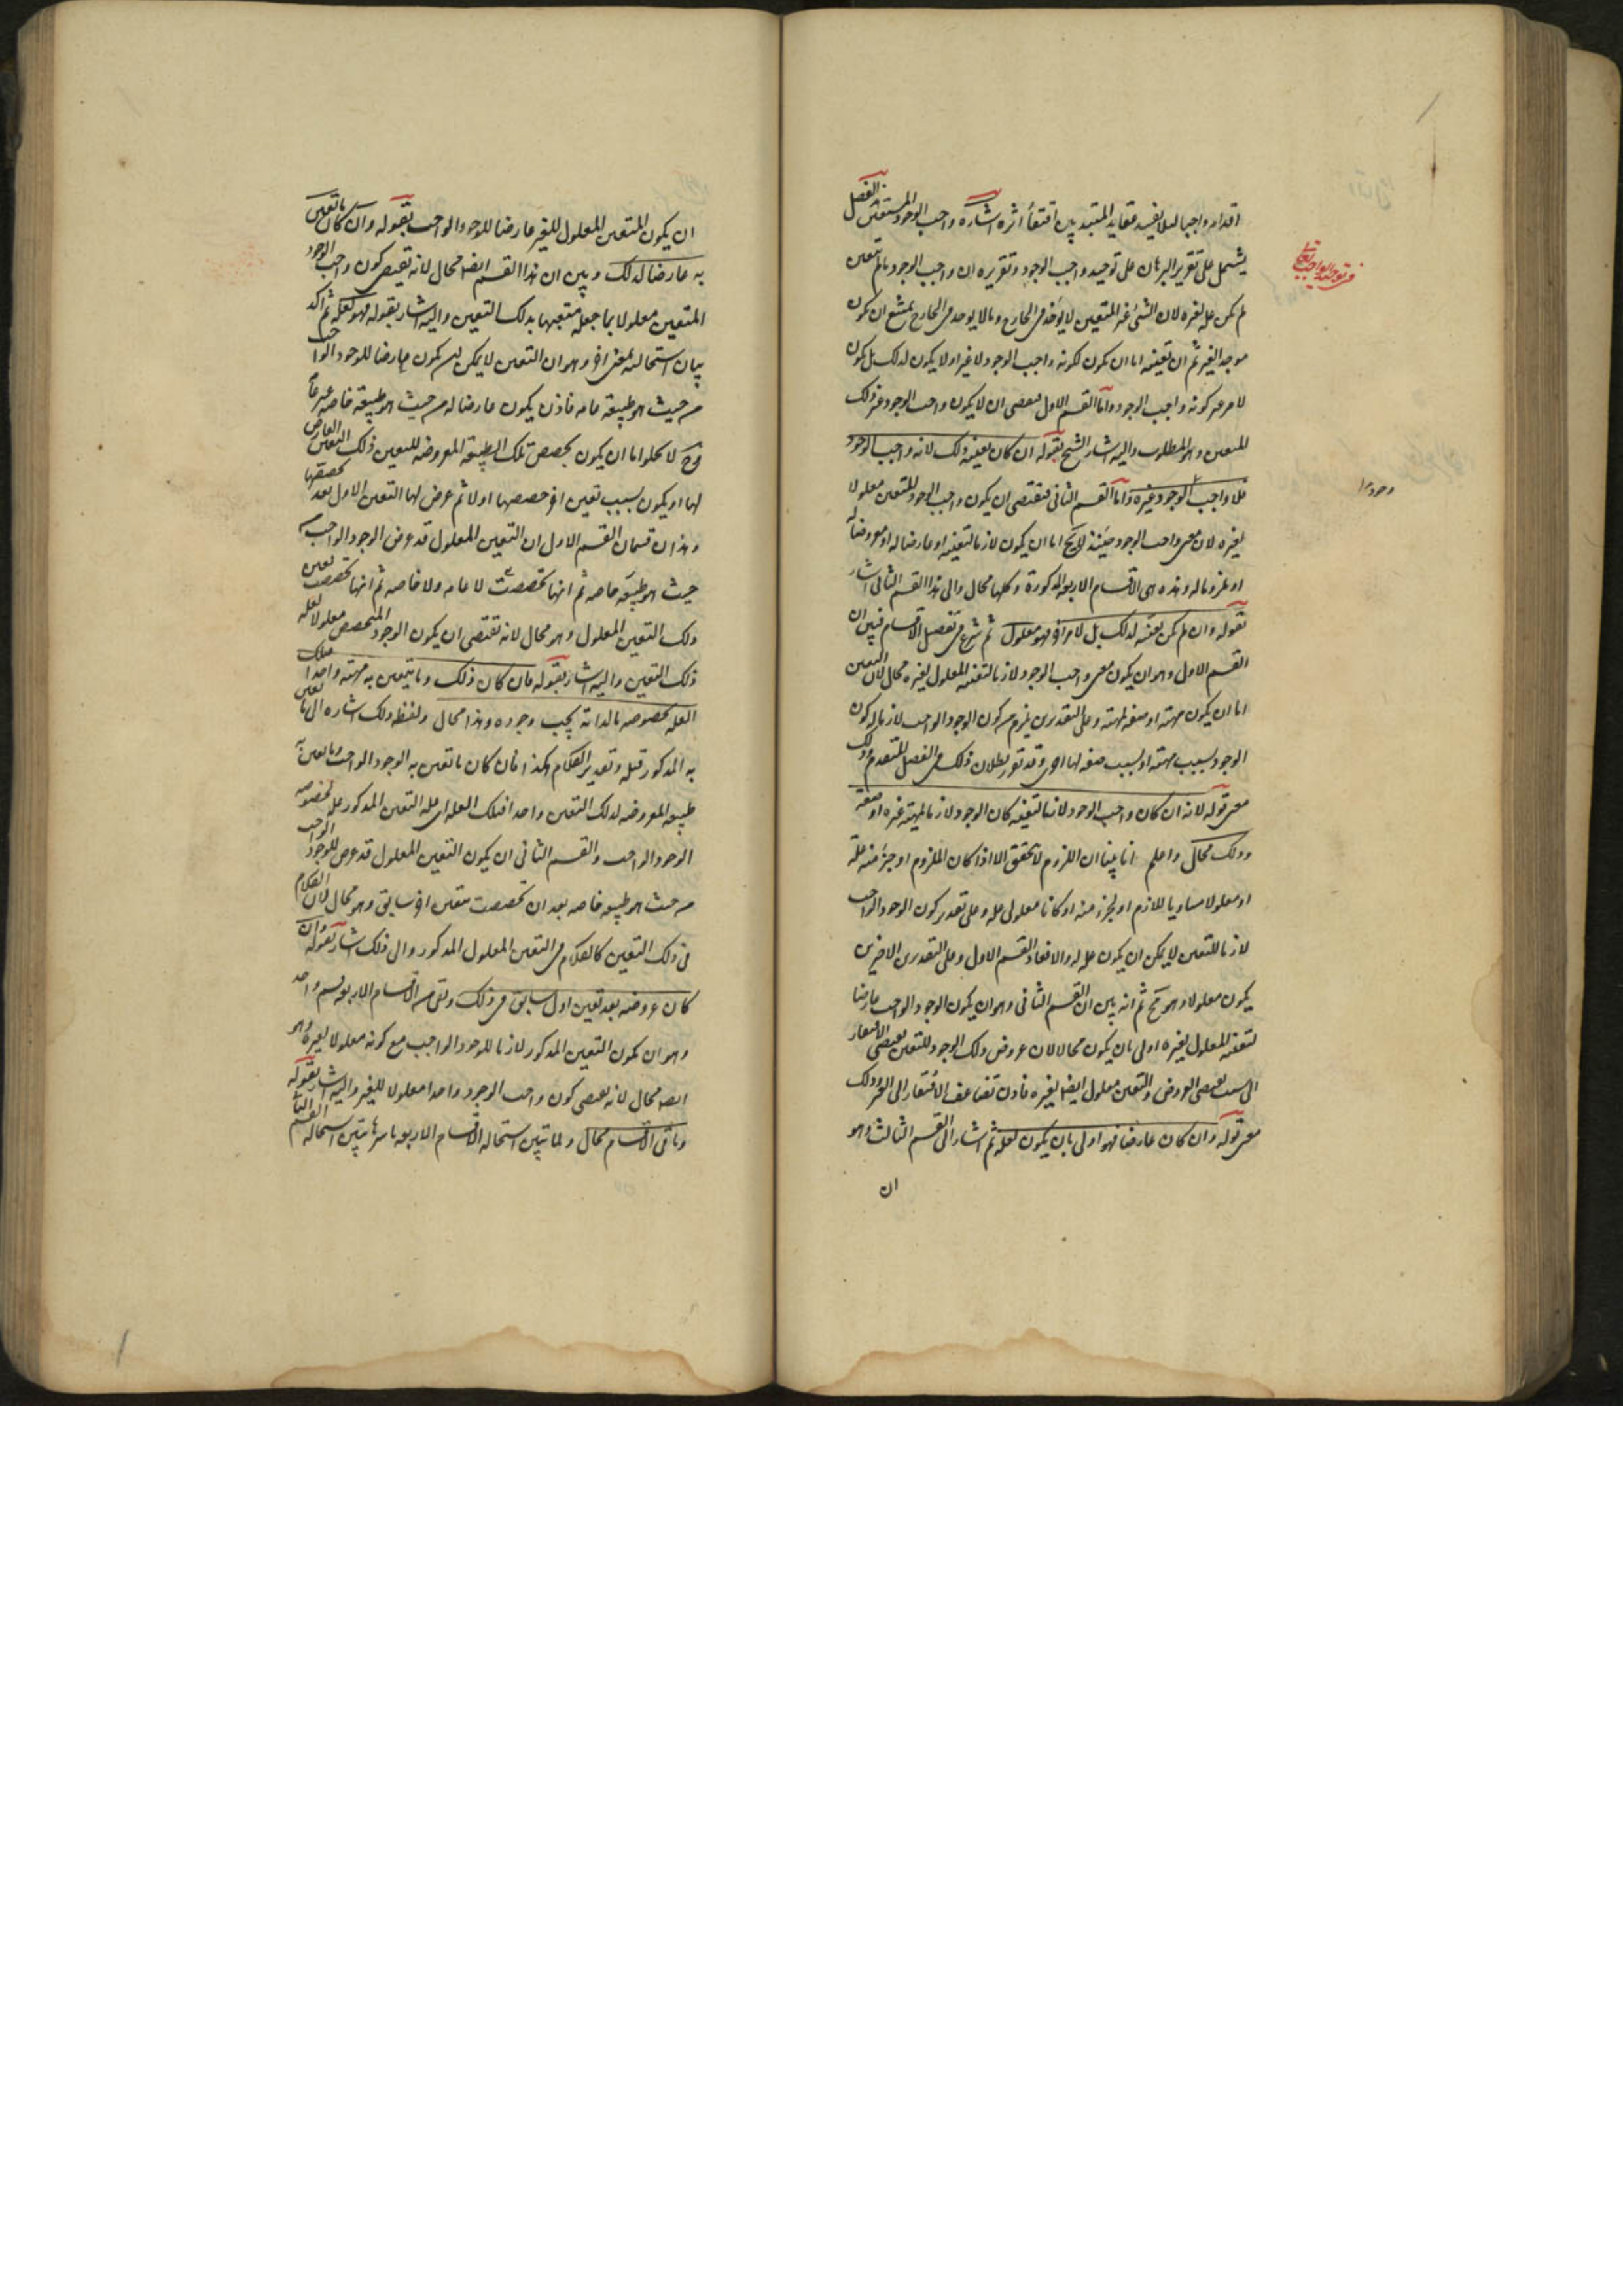 اقدامه واجبا لئلا يفسد عقايد المبتدين اقتفاء اثره اشارة واجب الوجود المتعين الفصل
يشتمل على تقرير البرهان على توحيد واجب الوجود وتقريره ان واجب الوجود ما لم يتعين
لم يكن علة لغيره لان الشئ غير المتعين لا يوجد فى الخارج وما لا يوجد فى الخارج يمتنع ان يكون
موجدا لغيره ثم ان تعينه اما ان يكون لكونه واجب الوجود لا غير او لا يكون لذلك بل يكون
لامر غير كونه واجب الوجود واما القسم الاول فيقتضى ان لا يكون واجب الوجود غير ذلك
المتعين وهو المطلوب واليه اشار الشيخ بقوله ان كان تعينه ذلك لانه واجب الوجود
فلا واجب الوجود غيره واما القسم الثانى فيقتضى ان يكون واجب الوجود المتعين معلولا
لغيره لان معنى واجب الوجود حينئذ لا يخ اما ان يكون لازما لتعينه او عارضا له او معروضا له
او ملزوما له وهذه هى الاقسام الاربعة المذكورة وكلها محال والى هذا القسم الثانى اشار
بقوله وان لم يكن تعينه لذلك بل لامر اخر فهو معلول ثم شرع فى تفصيل الاقسام فبين ان
القسم الاول وهو ان يكون معنى واجب الوجود لازما لتعينه المعلول لغيره محال لان التعين
اما ان يكون مهيته او صفة لمهيته وعلى التقديرين يلزم من كون الوجود الواجب لازما له كون
الوجود بسبب مهيته او بسبب صفة لها اخرى وقد تقرر بطلان ذلك فى الفصل المتقدم وذلك
معنى قوله لانه ان كان واجب الوجود لازما لتعينه كان الوجود لازما لمهية غيره او صفة
وذلك محال واعلم انا بينا ان اللزوم لا يتحقق الا اذا كان الملزوم او جزء منه علة
او معلولا مساويا للازم او لجزء منه او كانا معلولى علة وعلى تقدير كون الوجود الواجب
لازما للتعين لا يمكن ان يكون علة له والا لعاد القسم الاول وعلى التقديرين الاخيرين
يكون معلولا وهو مح ثم انه بين ان القسم الثانى وهو ان يكون الوجود الواجب عارضا
لتعينه المعلول لغيره اولى بان يكون محالا لان عروض ذلك الوجود للتعين يقتضى الافتقار
الى سبب يقتضى العروض والتعين معلول ايضا لغيره فاذن تضاعف الافتقار الى الغير وذلك
معنى قوله وان كان عارضا فهو اولى بان يكون لعلة ثم اشار الى القسم الثالث وهو
ان
فى توحيد الواجب تعالى
وجود
ان يكون التعين المعلول للغير عارضا للوجود الواجب بقوله وان كان ما تعين
به عارضا لذلك وبين ان هذا القسم ايضا محال لانه يقتضى كون واجب الوجود
المتعين معلولا بما جعله متعينا بذلك التعين واليه اشار بقوله فهو لعلة ثم اكد
بيان استحالته بمعنى اخر وهو ان التعين لا يمكن ان يكون عارضا للوجود الواجب
من حيث هو طبيعة عامة فاذن يكون عارضا له من حيث هو طبيعة خاصة غير عامة
وح لا يخلو اما ان يكون تخصص تلك الطبيعة المعروضة للتعين ذلك التعين العارض
لها او يكون بسبب تعين اخر خصصها اولا ثم عرض لها التعين الاول بعد تخصصها
وهذان قسمان القسم الاول ان التعين المعلول قد عرض الوجود الواجب
حيث هو طبيعة خاصة ثم انها تخصصت لا عامة ولا خاصة ثم انها تخصصت تعين
ذلك التعين المعلول وهو محال لانه يقتضى ان يكون الوجود المتخصص معلولا لعلة
ذلك التعين واليه اشار بقوله فان كان ذلك وما يتعين به مهيته واحدا فتلك
العلة لخصوصية ما لذاته يجب وجوده وهذا محال ولفظة ذلك اشارة الى ما تعين
به المذكور قبله وتقدير الكلام هكذا فان كان ما تعين به الوجود الواجب وما تعين به
طبيعة المعروضة لذلك التعين واحدا فتلك العلة اى علة التعين المذكور علة لخصوصية
الوجود الواجب والقسم الثانى ان يكون التعين المعلول قد عرض للوجود الواجب
من حيث هو طبيعة خاصة بعد ان تخصصت بتعين اخر سابق وهو محال لان الكلام
فى ذلك التعين كالكلام فى التعين المعلول المذكور والى ذلك اشار بقوله وان
كان عروضه بعد تعين اول سابق فى ذلك وبقى من الاقسام الاربعة قسم واحد
وهو ان يكون التعين المذكور لازما للوجود الواجب مع كونه معلولا لغيره وهو
ايضا محال لانه يقتضى كون واجب الوجود واحدا معلولا للغير واليه اشار بقوله
وباقى الاقسام محال ولما تبين استحالة الاقسام الاربعة باسرها تبين استحالة القسم الثانى